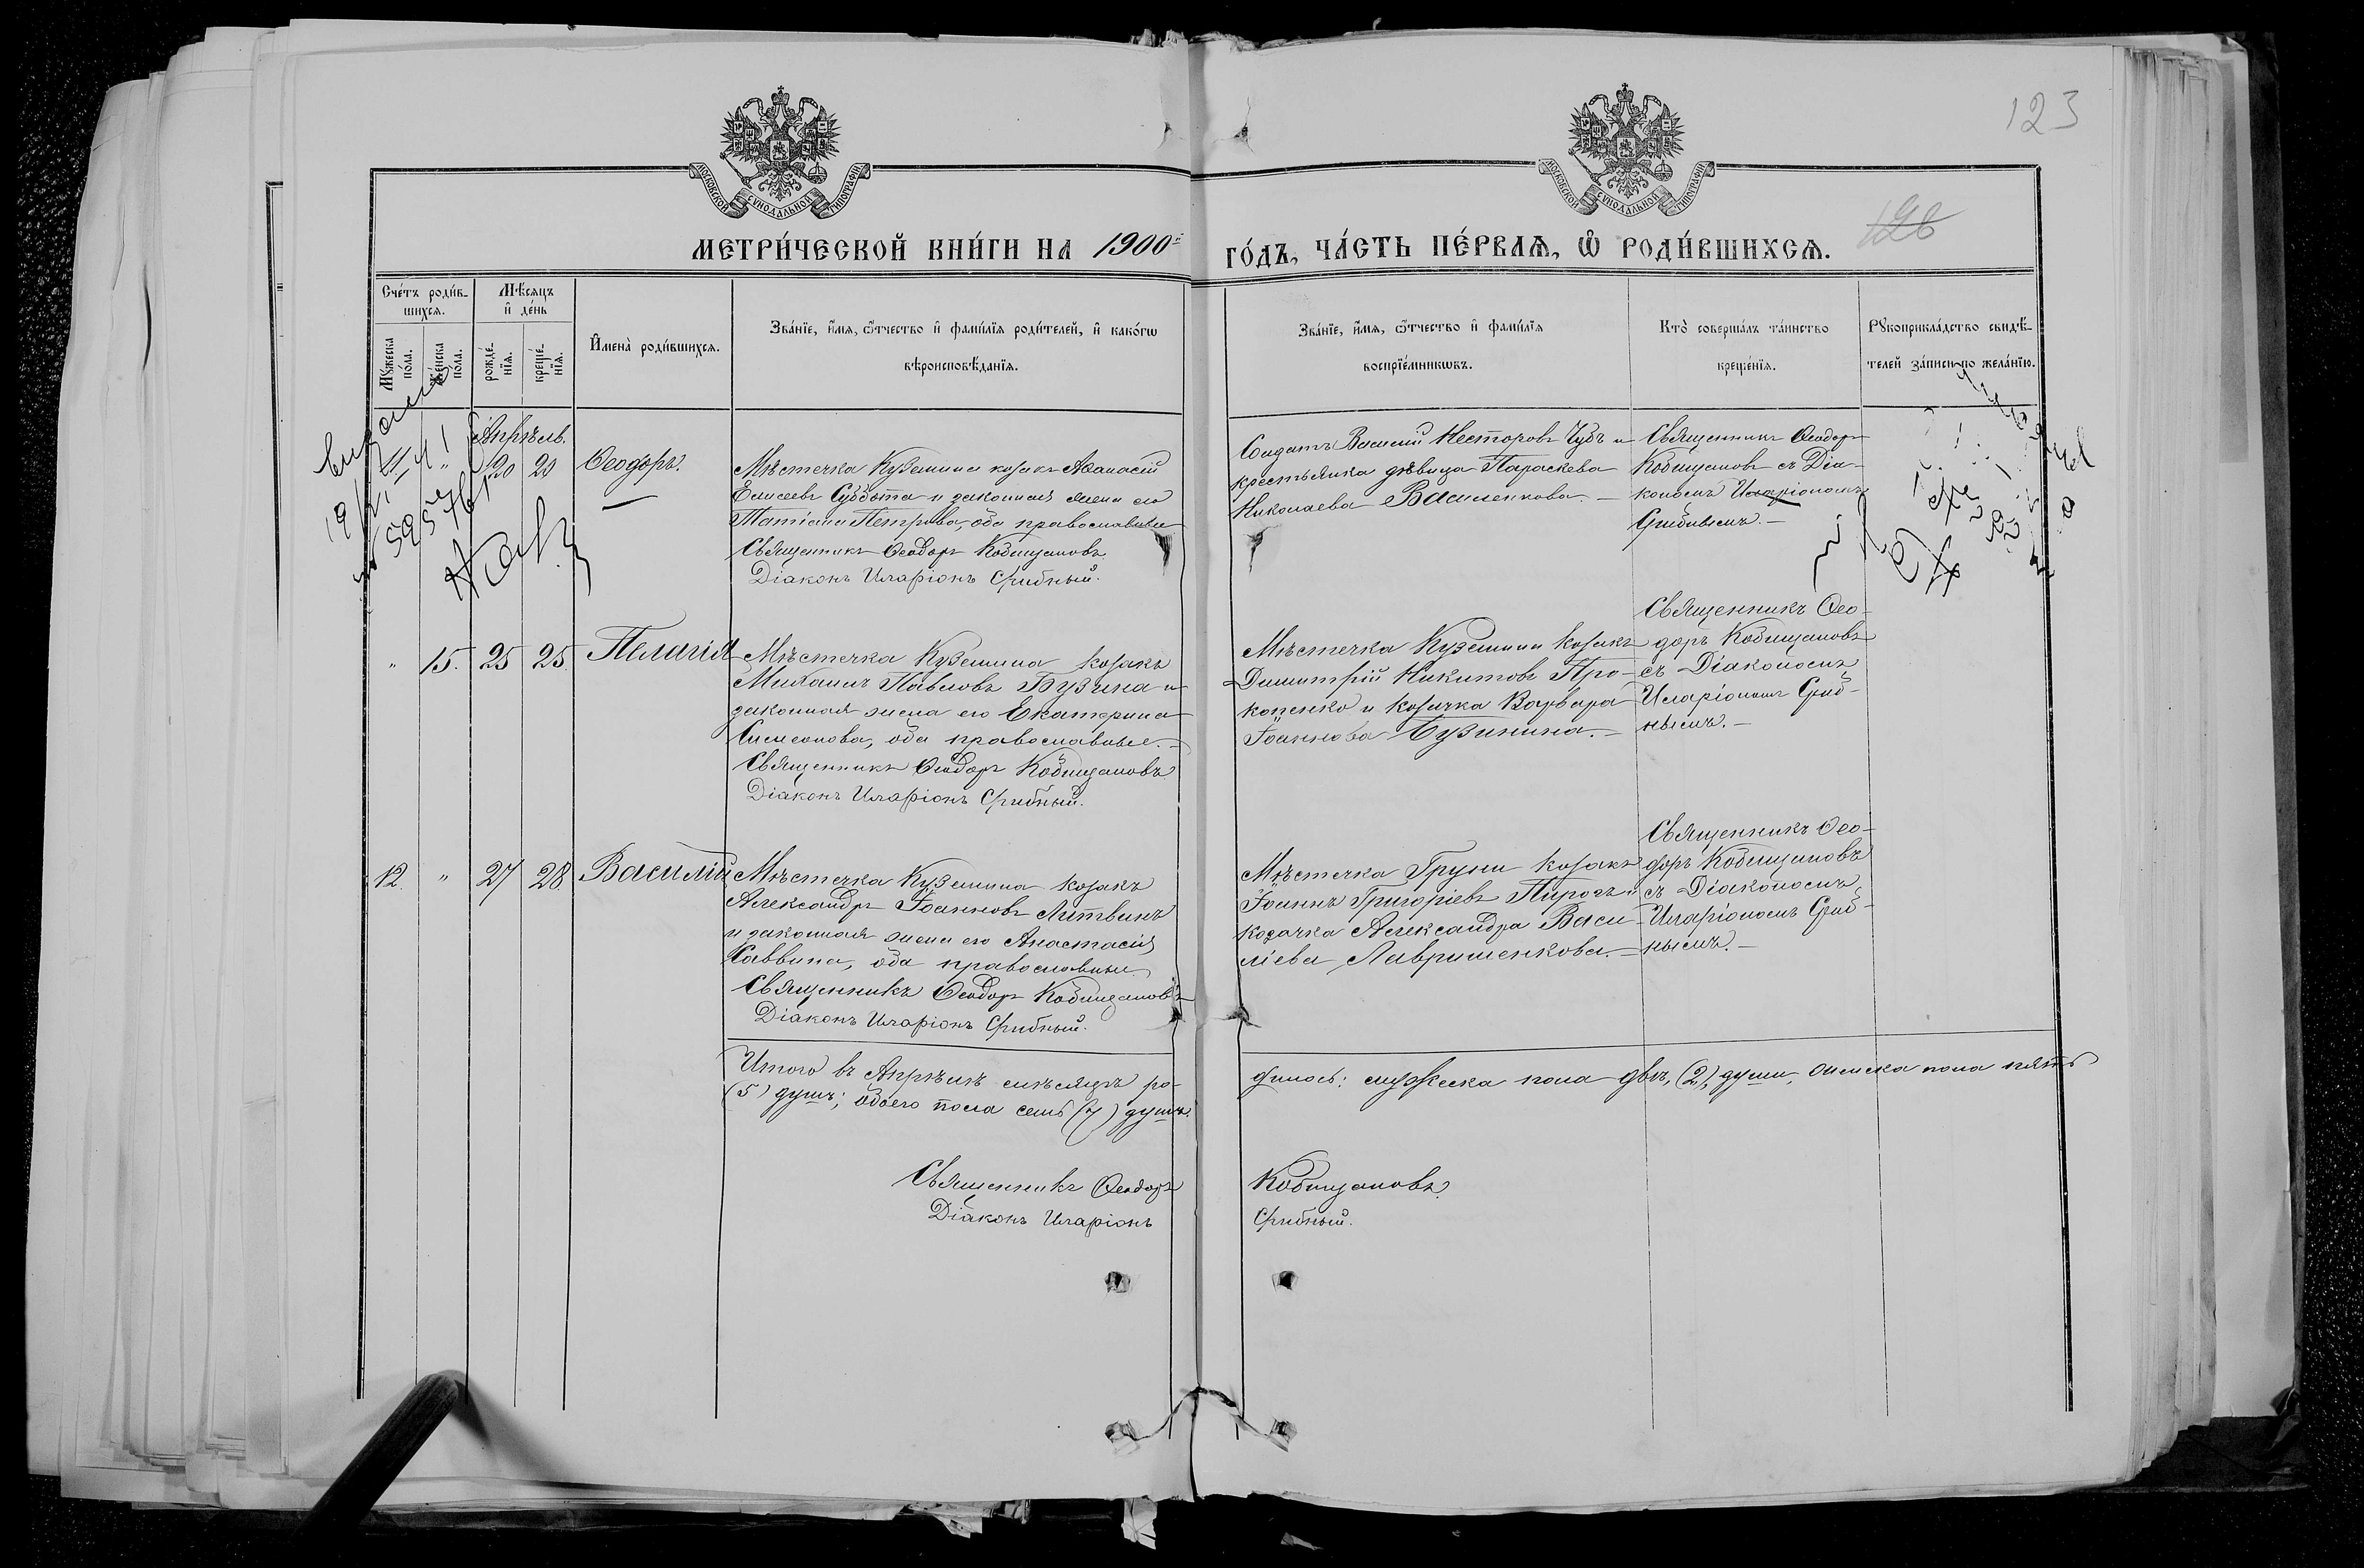 123
МОСКОВСКОЙ СѴНОДАЛЬНОЙ ТИПОГРАФІИ
МОСКОВСКОЙ СѴНОДАЛЬНОЙ ТИПОГРАФІИ
МЕТРИ́ЧЕСКОЙ КНИ́ГИ НА 1900й ГО́ДЪ, ЧА́СТЬ ПЕ́РВАѦ, Ѽ РОДИ́ВШИХСѦ.
126
Сче́тъ роди́в-
шихсѧ.
Мꙋ́жеска по́ла.
Же́нска по́ла.
Мѣ́сѧцъ
и҆ де́нь
рожде́-
нїѧ.
креще́-
нїѧ.
И҆мена̀ роди́вшихсѧ.
Зва́нїе, и҆́мѧ, ѻ҆́тчество и҆ фами́лїѧ роди́телей, и҆ како́гѡ
вѣроисповѣ́данїѧ.
Зва́нїе, и҆́мѧ, ѻ҆́тчество и҆ фами́лїѧ
воспрїе́мникѡвъ.
Кто̀ соверша́лъ та́инство
креще́нїѧ.
Рꙋкоприкла́дство свидѣ́-
телей за́писи по жела́нїю.
Апрѣль.
11 " 20 20 Ѳеодоръ.
Мѣстечка Куземина козакъ Аѳанасій
Елисеевъ Суббота и законная жена его
Татіана Петрова, оба православные
Священникъ Ѳеодоръ Кобищановъ
Діаконъ Иларіонъ Срибный.
Солдатъ Василій Несторовъ Чубъ и
крестьянка дѣвица Параскева
Николаева Василенкова. —
Священникъ Ѳеодоръ
Кобищановъ съ Діа-
кономъ Иларіономъ
Срибнымъ. —
" 15. 25 25. Пелагія
Мѣстечка Куземина козакъ
Михаилъ Павловъ Бузина и
законная жена его Екатерина
Симеонова, оба православные. —
Священникъ Ѳеодоръ Кобищановъ
Діаконъ Иларіонъ Срибный.
Мѣстечка Куземина козакъ
Димитрій Никитовъ Про-
копенко и козачка Варвара
Іоаннова Бузинина. —
Священникъ Ѳео-
доръ Кобищановъ
съ Діакономъ
Иларіономъ Сриб-
нымъ. —
12. " 27 28 Василій
Мѣстечка Куземина козакъ
Александръ Іоанновъ Литвинъ
и законная жена его Анастасія
Саввина, оба православные
Священникъ Ѳеодоръ Кобищановъ
Діаконъ Иларіонъ Срибный.
Мѣстечка Груни козакъ
Іоаннъ Григоріевъ Пирогъ и
козачка Александра Васи-
ліева Лавришенкова. —
Священникъ Ѳео-
доръ Кобищановъ
съ Діакономъ
Иларіономъ Сриб-
нымъ. —
Итого въ Апрѣлѣ мѣсяцѣ ро-
дилось: мужеска пола двѣ, (2), души, женска пола пять
(5) душъ; обоего пола семь (7) душъ.
Священникъ Ѳеодоръ Кобищановъ
Діаконъ Иларіонъ Срибный.